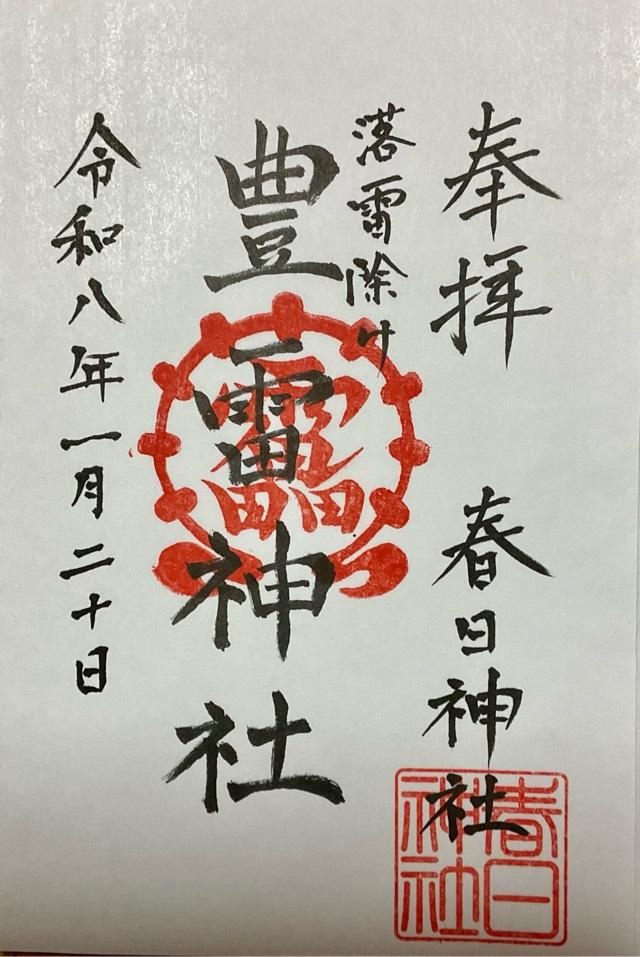 奉拝
春日神社
落雷除け
豊雷神社
令和八年一月二十日
春日
神社